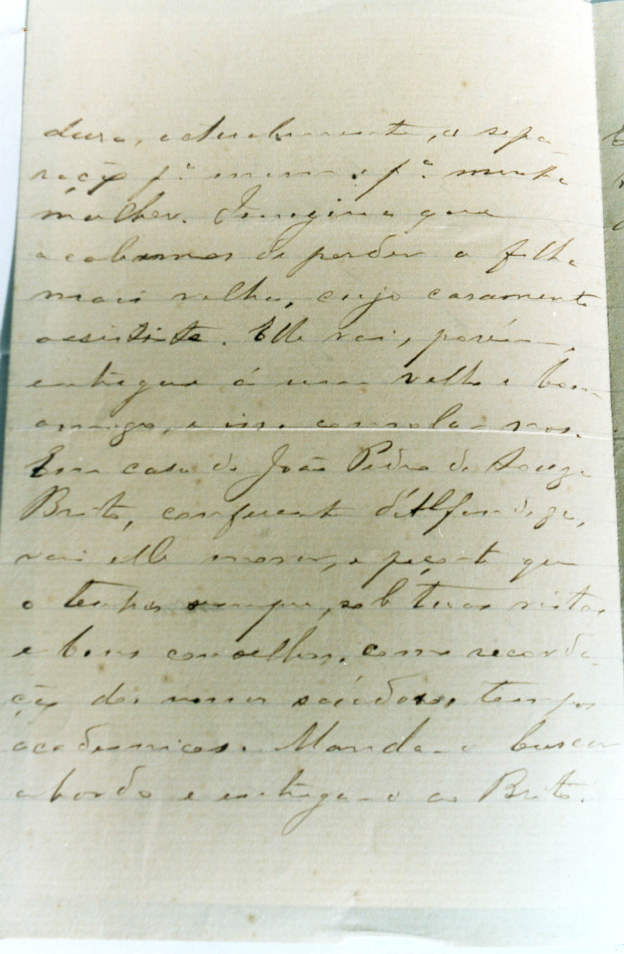 dura, actualmente, a sepa-
ração pª mim e pª minha
mulher. Imagina que
acabamos de perder a filha
mais velha, cujo casamento
assististe. Elle vai, porém,
entregue á um velho e bom
amigo, e isso consola-nos.
Em casa de João Pedro de Souza
Brito, conferente d'Alfandega,
vai elle morar, e peço-te que
o tenhas sempre, sob tuas vistas
e bons conselhos, como recorda-
ção dos nossos saudosos tempos
academicos. Manda-o buscar
a bordo e entrega-o ao Brito.